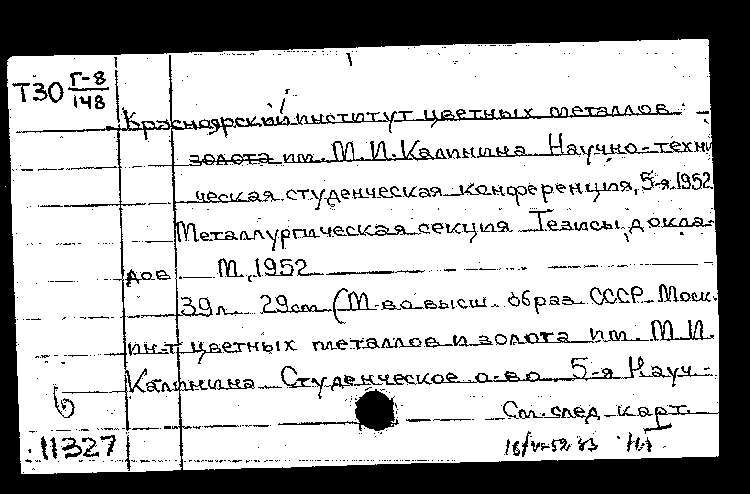 Т30 Г-8
148
Красноярский институт цветных металлов
золота им. М.И. Калинина Научно-техни
ческая студенческая конференция, 5-я, 1952
Металлургическая секция Тезисы докла-
дов М, 1952
39л. 29см (М-во высш. образ. СССР. Моск.
ин-т цветных металлов и золота им. М.И.
Калинина Студенческое о-во 5-я Науч-
См. след. карт.
11327